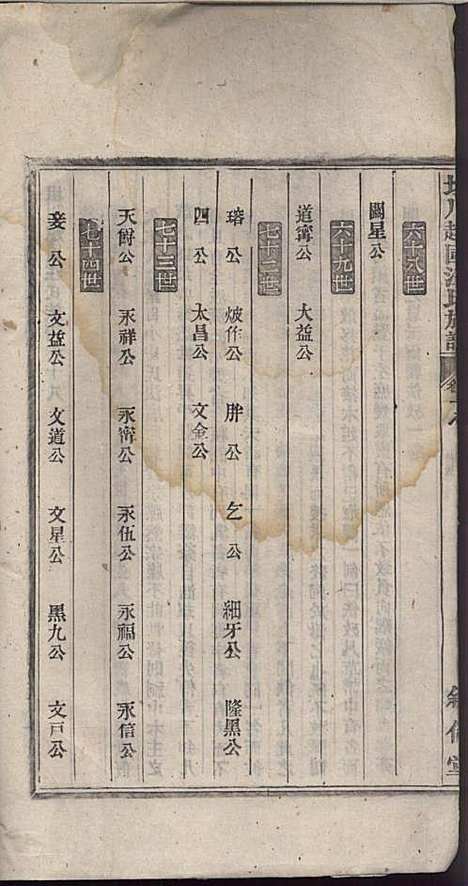 六十八世
關星公
六十九世
道甯公 大益公
七十二世
瑢公 炉作公 胖公 乞公 細牙公 隆黑公
四公 太昌公 文金公
七十三世
天爵公 永祥公 永甯公 永伍公 永福公 永信公
七十四世
妾公 文益公 文道公 文星公 黑九公 文戸公